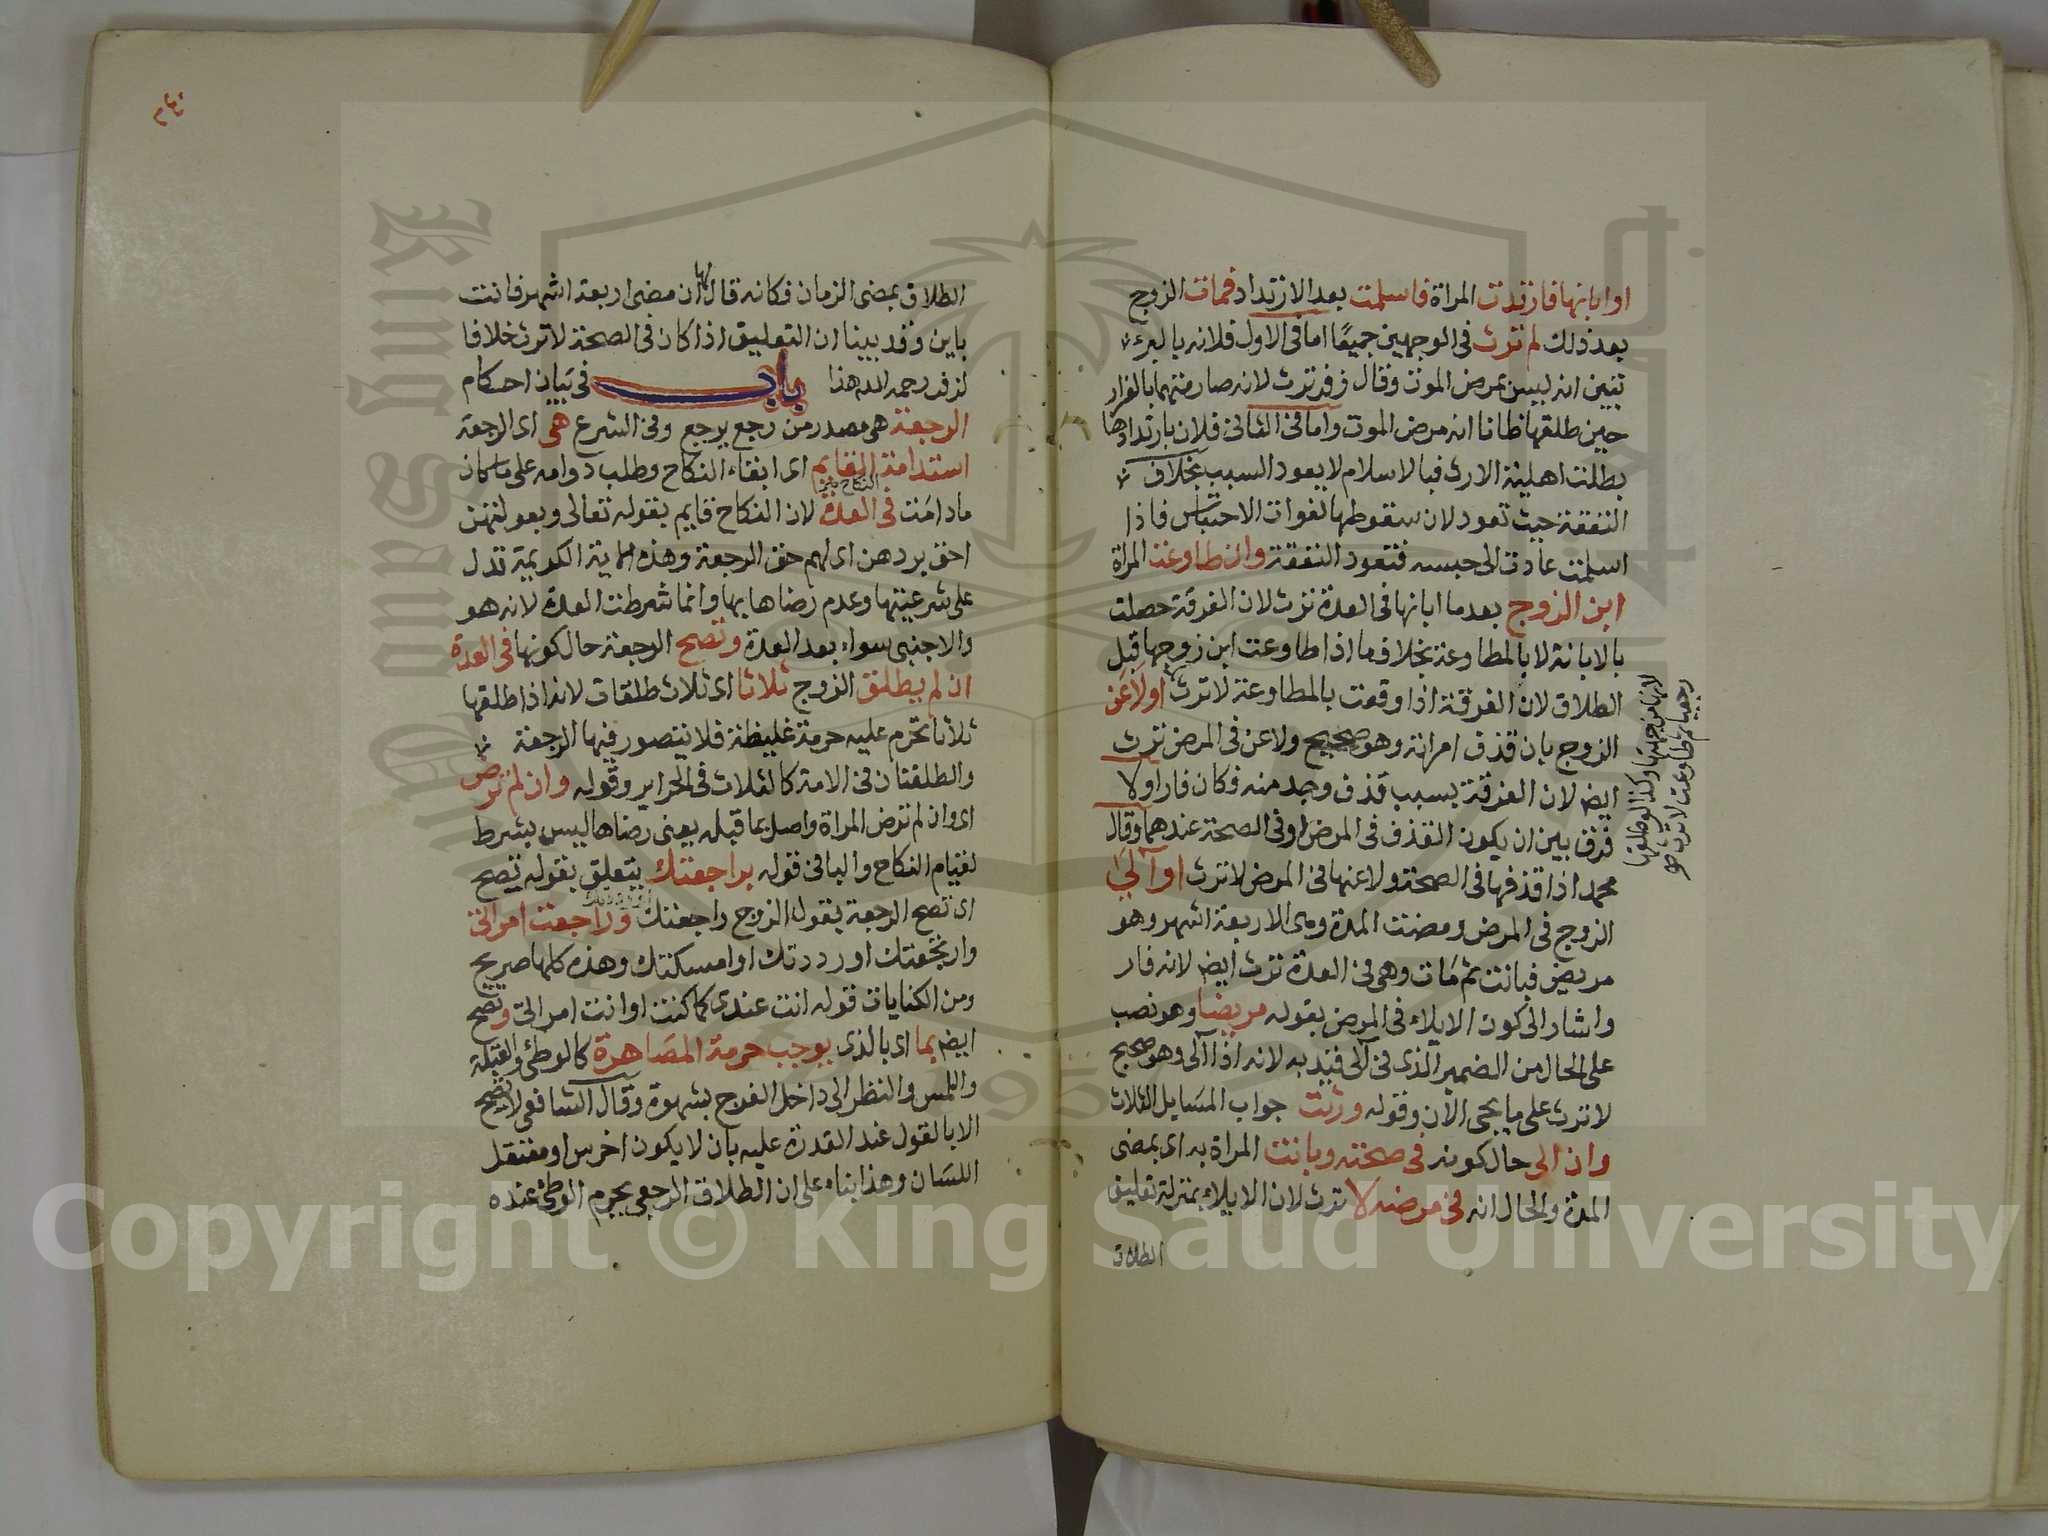 او ابانها فارتدت المراة فاسلمت بعد الارتداد فمات الزوج
بعد ذلك لم ترث فى الوجهين جميعًا اما فى الاول فلانه بالبرء
تبين انه ليس بمرض الموت وقال زفر ترث لانه صار متهما بالفرار
حين طلقها ظانا انه مرض الموت واما فى الثانى فلان بارتدادها
بطلت اهلية الارث فبالاسلام لا يعود السبب بخلاف
النفقة حيث تعود لان سقوطها لفوات الاحتباس فاذا
اسلمت عادت الى حبسه فتعود النفقة وان طاوعت المراة
ابن الزوج بعد ما ابانها فى العدة ترث لان الفرقة حصلت
بالابانة لا بالمطاوعة بخلاف ما اذا طاوعت ابن زوجها قبل
الطلاق لان الفرقة اذا وقعت بالمطاوعة لا ترث او لاعن
الزوج بان قذف امراته وهو صحيح ولاعن فى المرض ترث
ايض لان الفرقة بسبب قذف وجد منه فكان فارا ولا
فرق بين ان يكون القذف فى المرض او فى الصحة عندهما وقال
محمد اذا قذفها فى الصحة ولاعنها فى المرض لا ترث او آلى
الزوج فى المرض ومضت المدة وهى الاربعة اشهر وهو
مريض فبانت ثم مات وهى فى العدة ترث ايض لانه فار
واشار الى كون الايلاء فى المرض بقوله مريضا وهو نصب
على الحال من الضمير الذى فى آلى قيد به لانه اذا آلى وهو صحيح
لا ترث على ما يجى الآن وقوله ورثت جواب المسايل الثلاث
وان الى حال كونه فى صحته وبانت المراة به اى بمضى
المدة والحال انه فى مرضه لا ترث لان الايلاء بمنزلة تعليق
الطلاق
لانها من جهتها وكذا لو طلقها
رجعيا ثم طاوعت لا ترث
الطلاق بمضى الزمان فكانه قال لها ان مضى اربعة اشهر فانت
باين وقد بينا ان التعليق اذا كان فى الصحة لا ترث خلافا
لزفر رحمه الله هذا باب فى بيان احكام
الرجعة هى مصدر من رجع يرجع وفى الشرع هى اى الرجعة
استدامة القايم اى ابقاء النكاح وطلب دوامه على ما كان
ما دامت فى العدة لان النكاح قايم بقوله تعالى وبعولتهن
احق بردهن اى لهم حق الرجعة وهذه الاية الكريمة تدل
على شرعيتها وعدم رضاها بها وانما شرطت العدة لانه هو
والاجنبى سواء بعد العدة وتصح الرجعة حال كونها فى العدة
ان لم يطلق الزوج ثلاثا اى ثلاث طلقات لانه اذا طلقها
ثلاثا تحرم عليه حرمة غليظة فلا يتصور فيها الرجعة
والطلقتان فى الامة كالثلاث فى الحراير وقوله وان لم ترض
اى وان لم ترض المراة واصل بما قبله يعنى رضاها ليس بشرط
لقيام النكاح والبا فى قوله براجعتك يتعلق بقوله تصح
اى تصح الرجعة بقول الزوج راجعتك وراجعت امراتى
وارتجعتك او رددتك او امسكتك وهذه كلها صريح
ومن الكنايات قوله انت عندى كما كنت او انت امراتى وتصح
ايض بما اى بالذى يوجب حرمة المصاهرة كالوطئ والقبلة
واللمس والنظر الى داخل الفرج بشهوة وقال الشافعى لا تصح
الا بالقول عند القدرة عليه بان لا يكون اخرس او معتقل
اللسان وهذا بناء على ان الطلاق الرجعى يحرم الوطئ عنده
Copyright © King Saud University
King Saud University